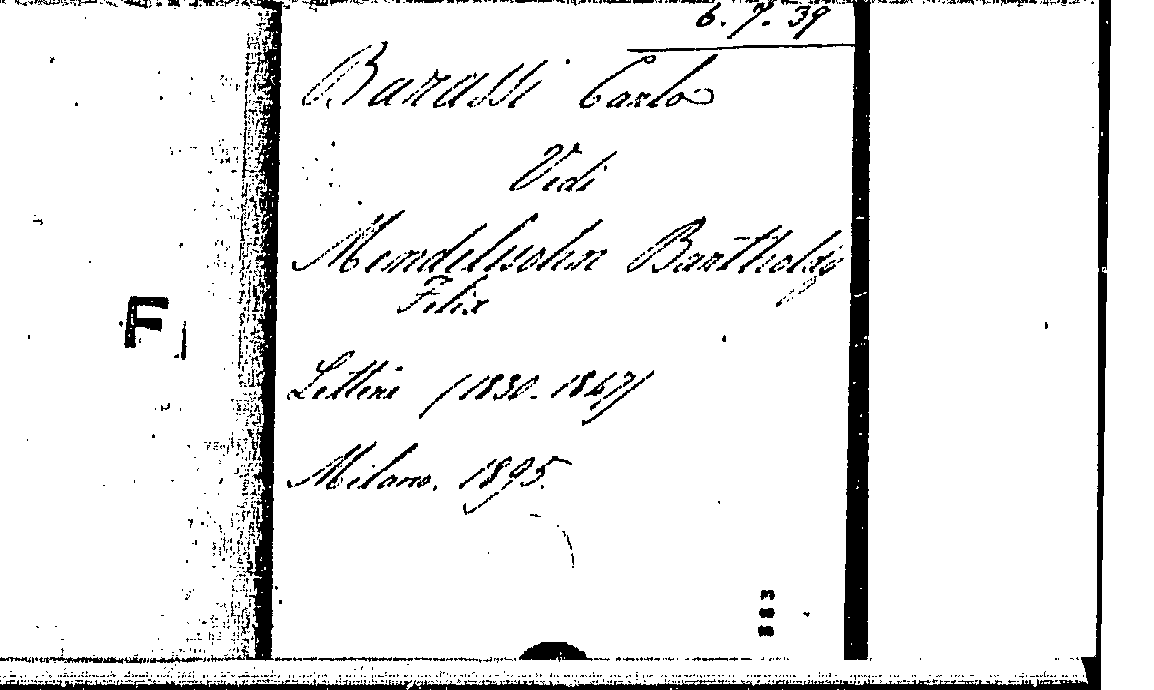 6. 7. 39
Barassi Carlo
Vedi
Mendelssohn Bartholdy
Felix
Lettere (1830-1847)
Milano. 1895.
F